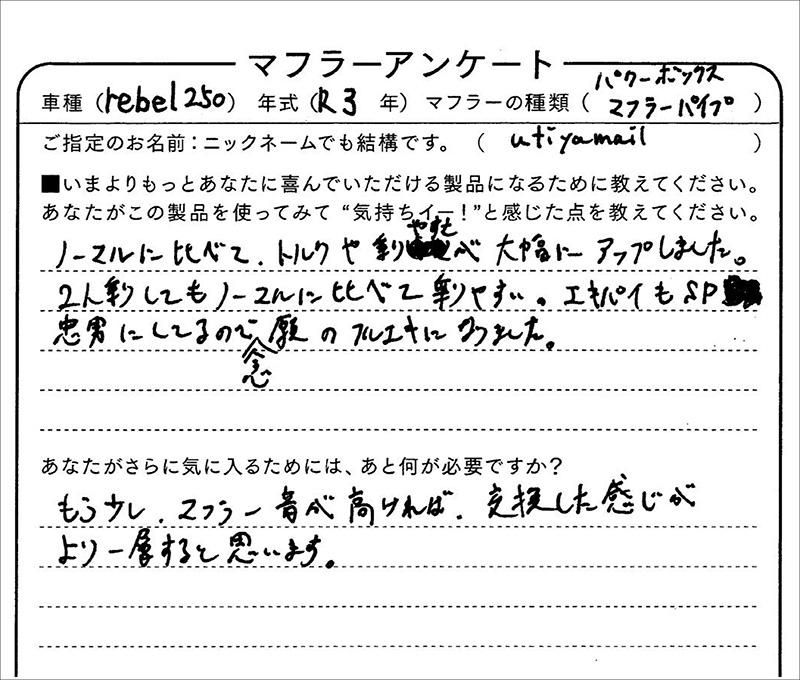 マフラーアンケート
車種（rebel250） 年式（R3 年）マフラーの種類（パワーボックスマフラーパイプ）
ご指定のお名前：ニックネームでも結構です。（utiyamail）
■いまよりもっとあなたに喜んでいただける製品になるために教えてください。
あなたがこの製品を使ってみて“気持ちイー！”と感じた点を教えてください。
ノーマルに比べて、トルクや乗りやすさが大幅にアップしました。
2人乗りしてもノーマルに比べて乗りやすい。エキパイもSP
忠男にしてるので念願のフルエキになりました。
あなたがさらに気に入るためには、あと何が必要ですか？
もう少し、マフラー音が高ければ、交換した感じが
より一層すると思います。